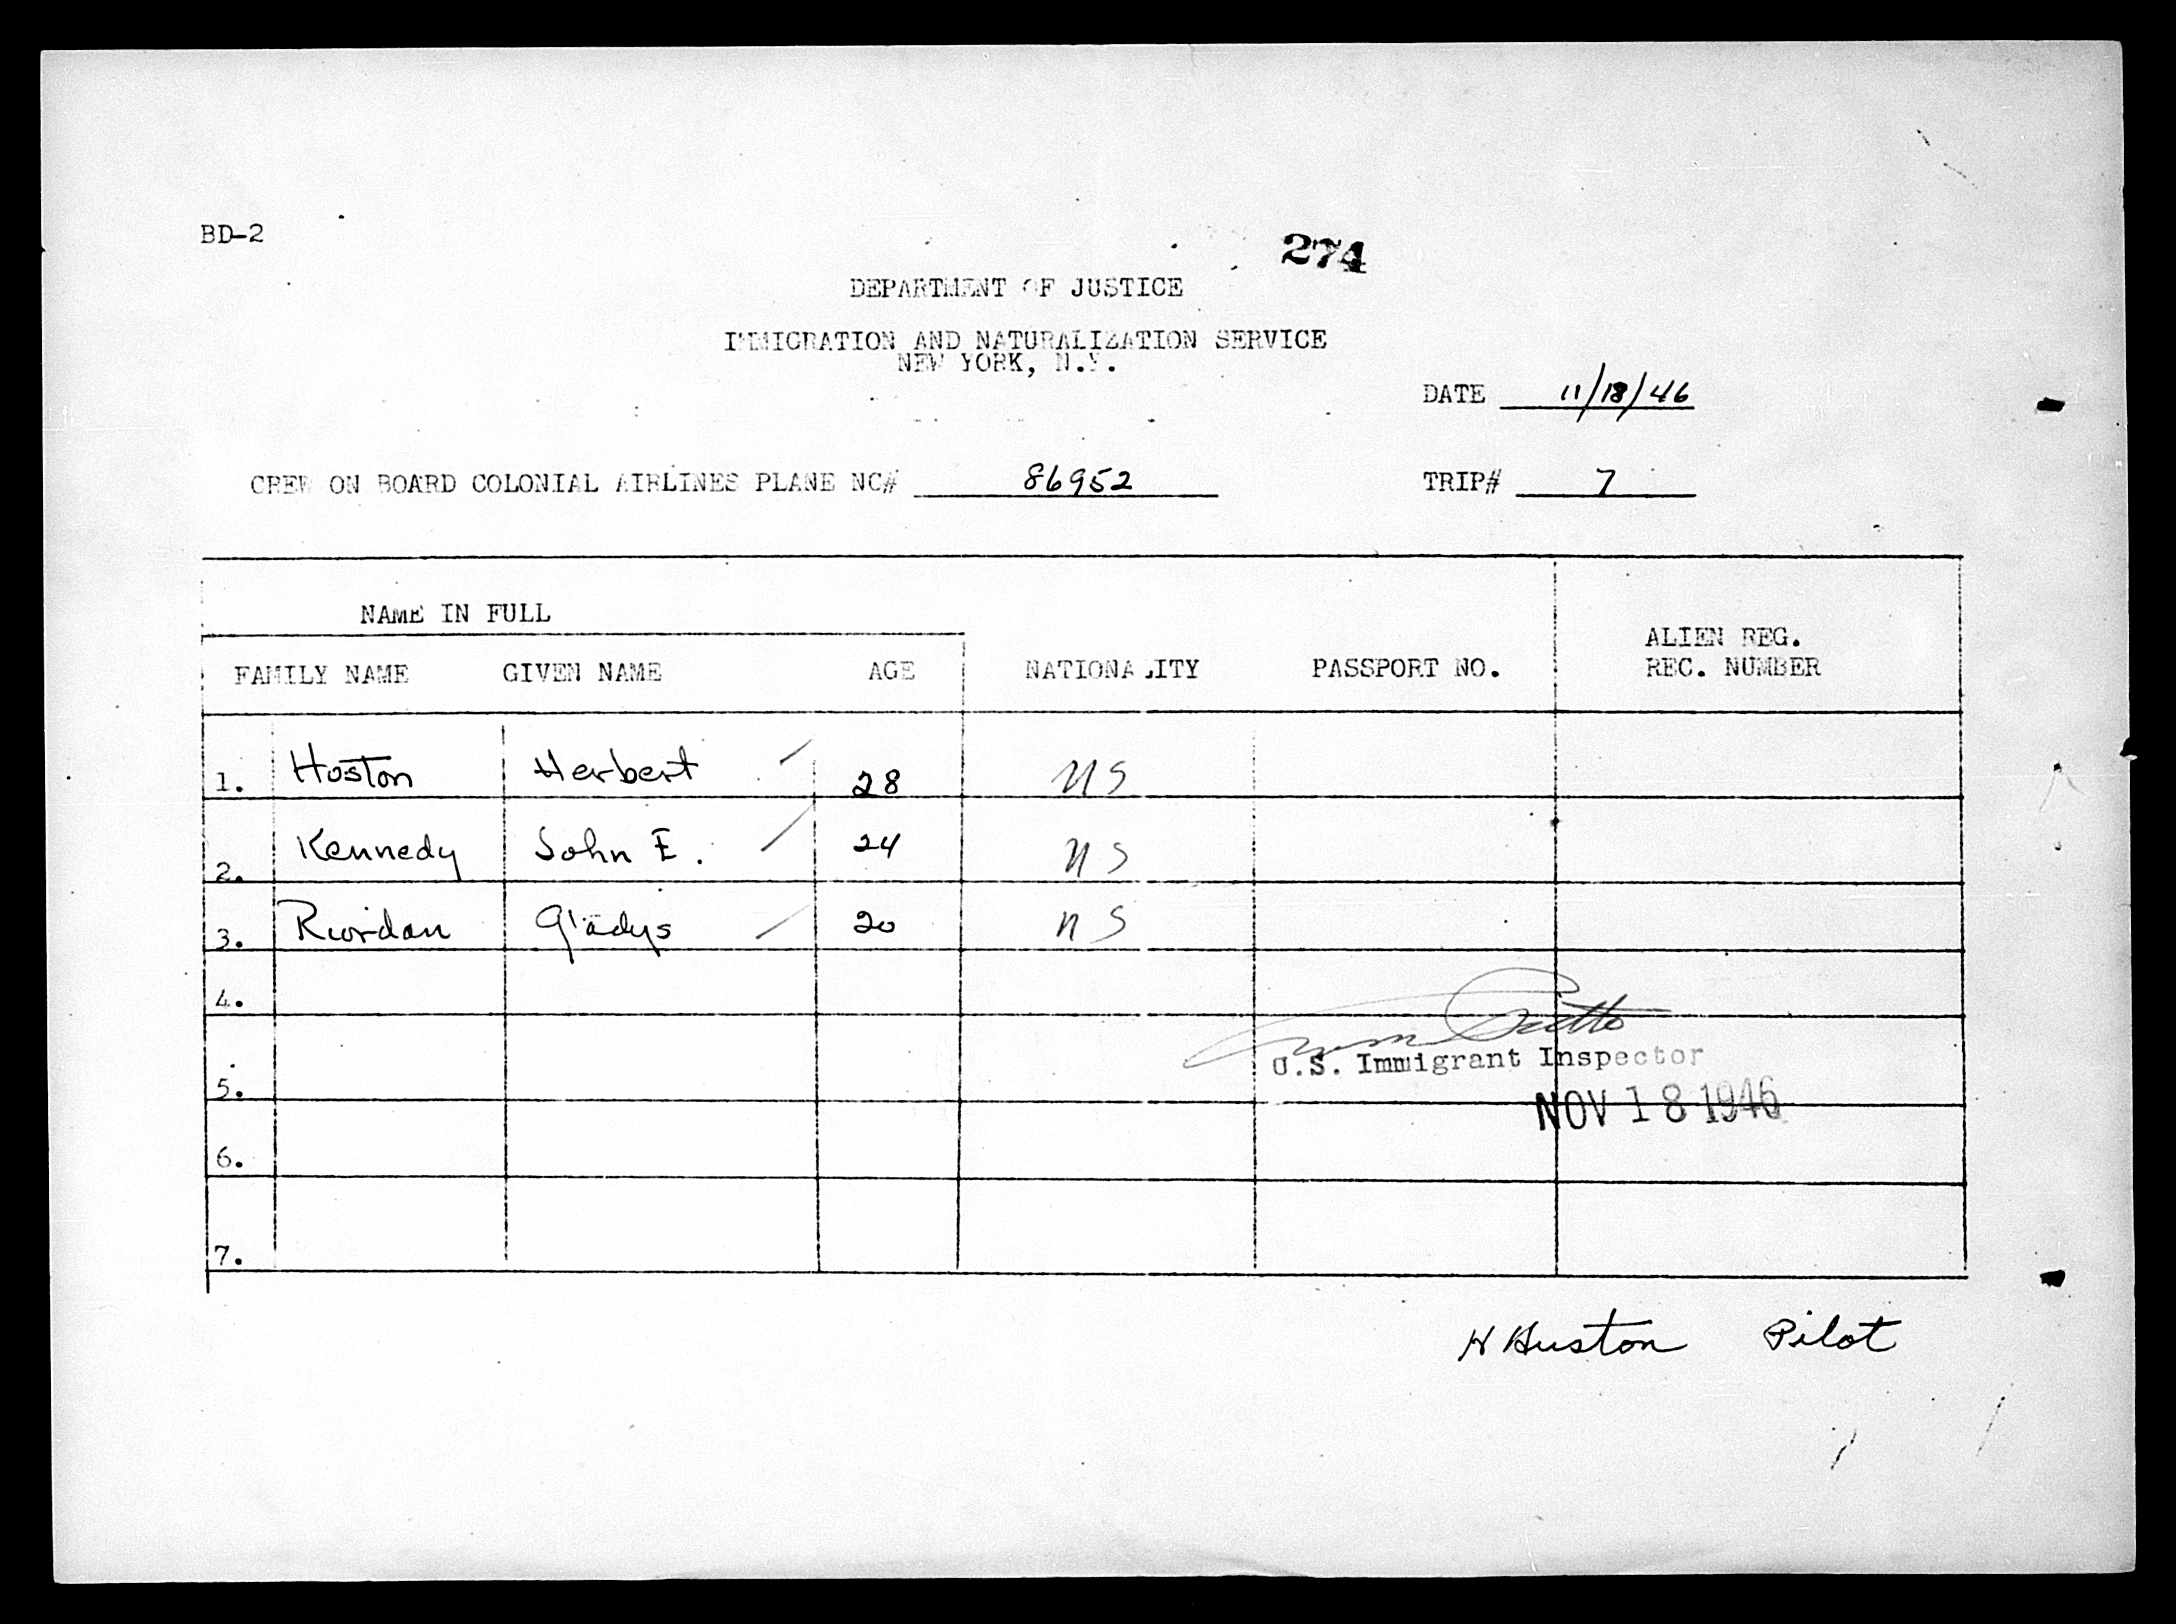 BD-2
274
DEPARTMENT OF JUSTICE
IMMIGRATION AND NATURALIZATION SERVICE
NEW YORK, N.Y.
DATE 11/18/46
CREW ON BOARD COLONIAL AIRLINES PLANE NC# 86952 TRIP# 7
NAME IN FULL
FAMILY NAME GIVEN NAME AGE NATIONALITY PASSPORT NO. ALIEN REG. REC. NUMBER
1. Huston Herbert 28 US
2. Kennedy John E. 24 US
3. Riordan Gladys 20 US
4.
U.S. Immigrant Inspector
5.
NOV 18 1946
6.
7.
H Huston Pilot